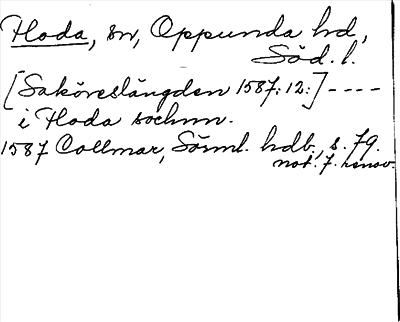 Floda, sn, Oppunda hd,
Söd. l.
[Saköreslängden 1587: 12:] ----
i Floda sochnn.
1587 Collmar, Sörml. hdb., s. 79.
not. 7. renov.